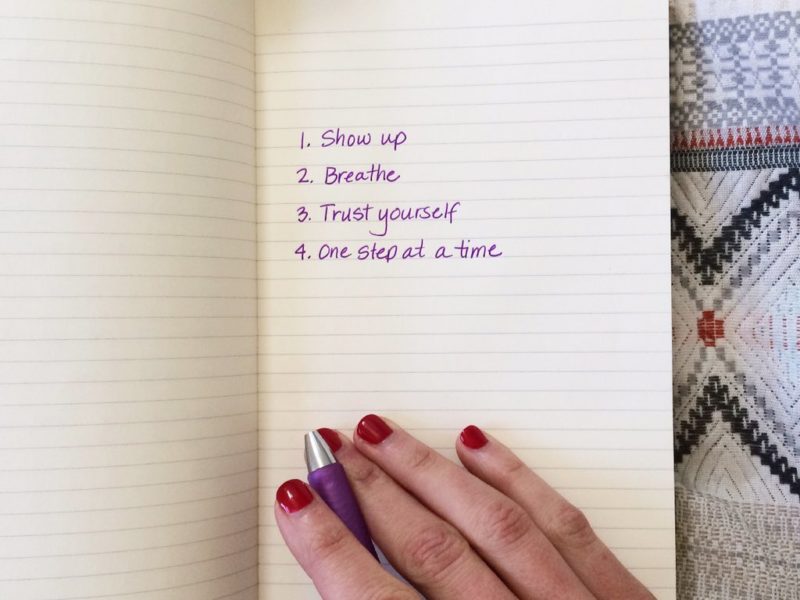 1. Show up
2. Breathe
3. Trust yourself
4. One step at a time